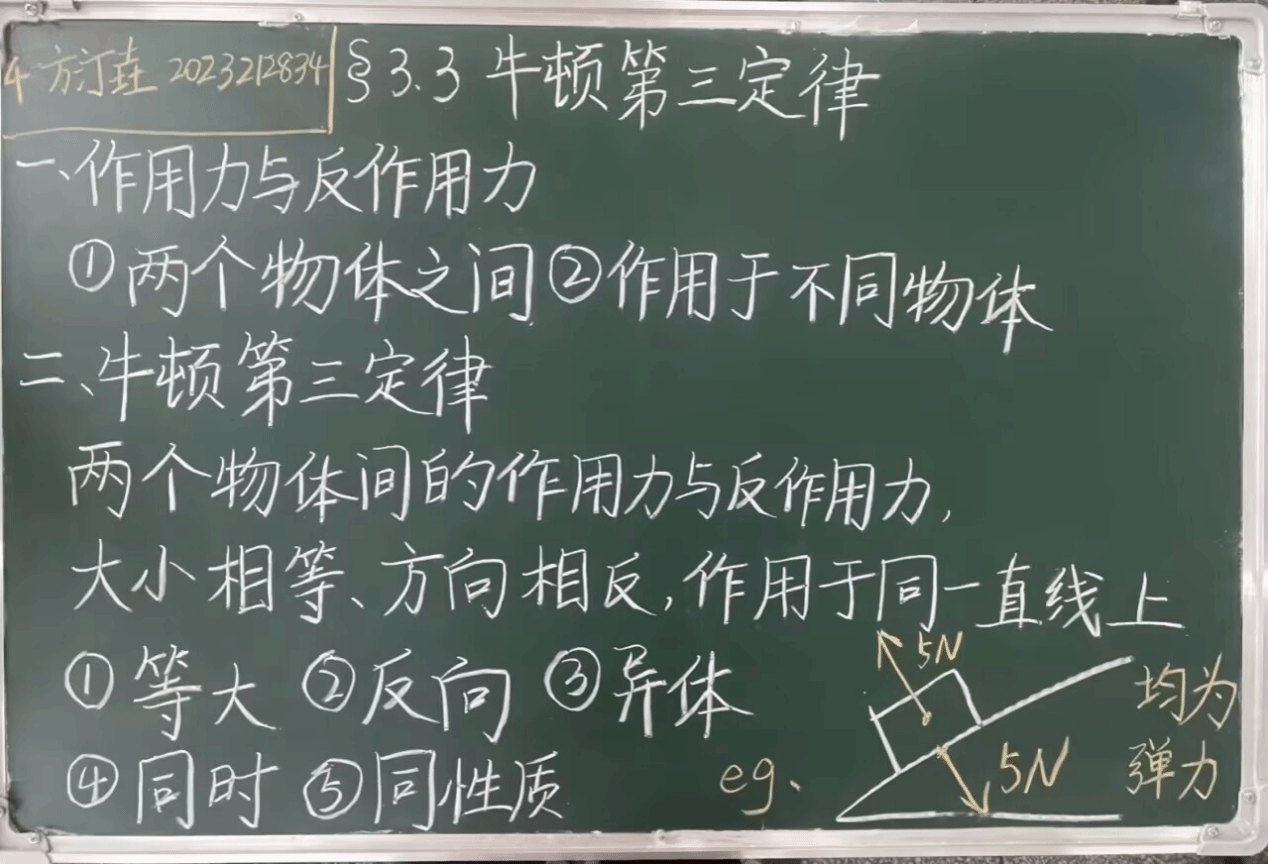 4 方汀垚 2023212834
§3.3 牛顿第三定律
一、作用力与反作用力
①两个物体之间②作用于不同物体
二、牛顿第三定律
两个物体间的作用力与反作用力,
大小相等、方向相反,作用于同一直线上
①等大 ②反向 ③异体
④同时 ⑤同性质
eg、
5N
5N
均为
弹力